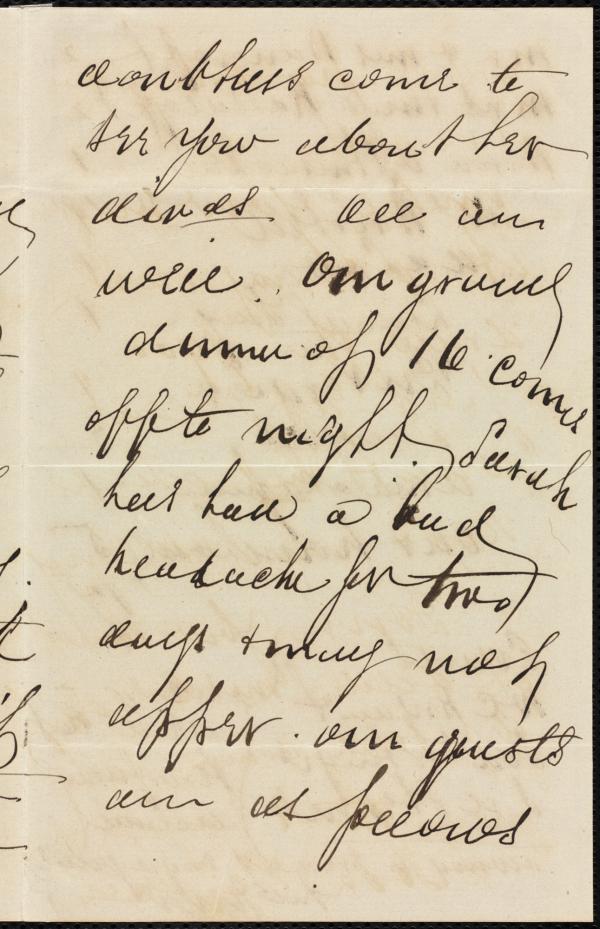 doubtless come to
see you about her
ideas All are
well. Our grand
dinner of 16 comes
off to night. Sarah
has had a bad
headache for two
days & may not
appear. our guests
are as follows